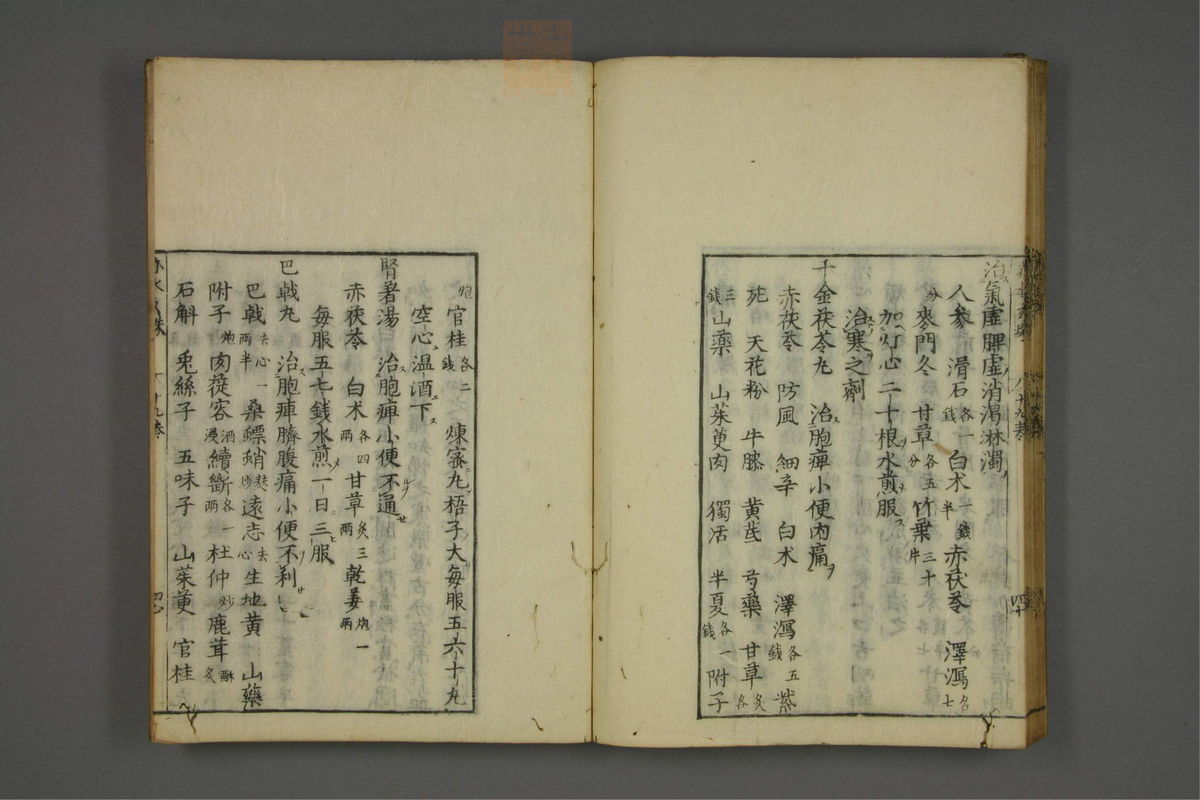 治氣虛脾虛消渴淋濁
人參 滑石各一錢 白术一錢半 赤茯苓 澤瀉各七分
麥門冬 甘草各五分 竹葉三十片
加灯心二十根水煎服
治寒之劑
千金茯苓丸 治胞痺小便內痛
赤茯苓 防風 細辛 白术 澤瀉各五錢 紫
菀 天花粉 牛膝 黄芪 芍藥 甘草炙各
三錢 山藥 山茱萸肉 獨活 半夏各一錢 附子
炮 官桂各二錢 煉蜜丸梧子大每服五六十丸
空心温酒下
腎著湯 治胞痺小便不通
赤茯苓 白术各四兩 甘草炙三兩 乾姜炮一兩
每服五七錢水煎一日三服
巴戟丸 治胞痺臍腹痛小便不利
巴戟去心一兩半 桑螵蛸麩炒 遠志去心 生地黄 山藥
附子炮 肉蓯蓉酒浸 續斷各一兩 杜仲炒 鹿茸酥炙
石斛 兎絲子 五味子 山茱萸 官桂